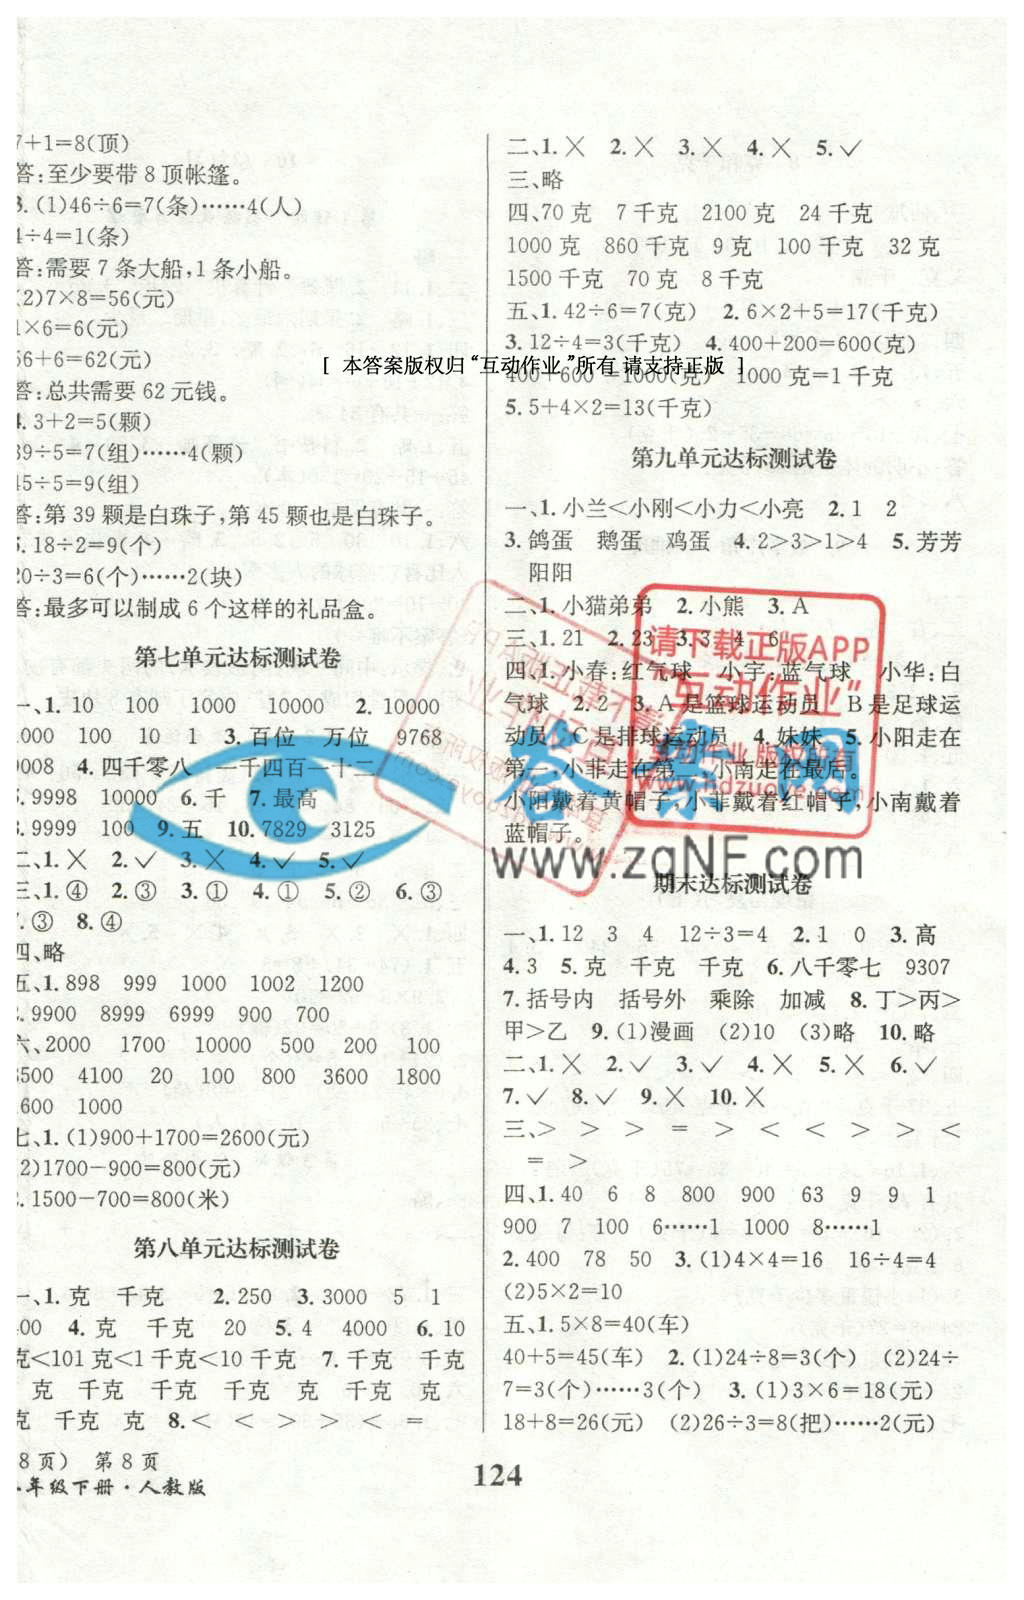 7+1=8(顶)
答:至少要带 8 顶帐篷。
3. (1)46÷6=7(条)……4(人)
4÷4=1(条)
答:需要 7 条大船,1 条小船。
(2)7×8=56(元)
1×6=6(元)
56+6=62(元)
答:总共需要 62 元钱。
4. 3+2=5(颗)
39÷5=7(组)……4(颗)
45÷5=9(组)
答:第 39 颗是白珠子,第 45 颗也是白珠子。
5. 18÷2=9(个)
20÷3=6(个)……2(块)
答:最多可以制成 6 个这样的礼品盒。
第七单元达标测试卷
一、1. 10 100 1000 10000 2. 10000
1000 100 10 1 3. 百位 万位 9768
9008 4. 四千零八 一千四百一十二
5. 9998 10000 6. 千 7. 最高
8. 9999 100 9. 五 10. 7829 3125
二、1. ✕ 2. ✓ 3. ✕ 4. ✓ 5. ✓
三、1. ④ 2. ③ 3. ① 4. ① 5. ② 6. ③
7. ③ 8. ④
四、略
五、1. 898 999 1000 1002 1200
2. 9900 8999 6999 900 700
六、2000 1700 10000 500 200 100
3500 4100 20 100 800 3600 1800
600 1000
七、1. (1)900+1700=2600(元)
(2)1700-900=800(元)
2. 1500-700=800(米)
第八单元达标测试卷
一、1. 克 千克 2. 250 3. 3000 5 1
400 4. 克 千克 20 5. 4 4000 6. 10
克<101 克<1 千克<10 千克 7. 千克 千克
克 千克 千克 千克 千克 千克 克
克 千克 克 8. < < > > < =
8 页) 第 8 页
年级下册·人教版
二、1. ✕ 2. ✕ 3. ✕ 4. ✕ 5. ✓
三、略
四、70 克 7 千克 2100 克 24 千克
1000 克 860 千克 9 克 100 千克 32 克
1500 千克 70 克 8 千克
五、1. 42÷6=7(克) 2. 6×2+5=17(千克)
3. 12÷4=3(千克) 4. 400+200=600(克)
[ 本答案版权归“互动作业”所有 请支持正版 ]
400+600=1000(克) 1000 克=1 千克
5. 5+4×2=13(千克)
第九单元达标测试卷
一、1. 小兰<小刚<小力<小亮 2. 1 2
3. 鸽蛋 鹅蛋 鸡蛋 4. 2>3>1>4 5. 芳芳
阳阳
二、1. 小猫弟弟 2. 小熊 3. A
三、1. 21 2. 23 3. 3 4 6
四、1. 小春:红气球 小宇:蓝气球 小华:白
气球 2. 2 3. A 是篮球运动员 B 是足球运
动员 C 是排球运动员 4. 妹妹 5. 小阳走在
第一,小菲走在第二,小南走在最后。
小阳戴着黄帽子,小菲戴着红帽子,小南戴着
蓝帽子。
请下载正版APP
“互动作业”
互动作业 版权所有
www.hdzuoye.com
答案圈
www.zqNF.com
期末达标测试卷
一、1. 12 3 4 12÷3=4 2. 1 0 3. 高
4. 3 5. 克 千克 千克 6. 八千零七 9307
7. 括号内 括号外 乘除 加减 8. 丁>丙>
甲>乙 9. (1)漫画 (2)10 (3)略 10. 略
二、1. ✕ 2. ✓ 3. ✓ 4. ✕ 5. ✕ 6. ✓
7. ✓ 8. ✓ 9. ✕ 10. ✕
三、> > > = > < < > > <
= >
四、1. 40 6 8 800 900 63 9 9 1
900 7 100 6……1 1000 8……1
2. 400 78 50 3. (1)4×4=16 16÷4=4
(2)5×2=10
五、1. 5×8=40(车)
40+5=45(车) 2. (1)24÷8=3(个) (2)24÷
7=3(个)……3(个) 3. (1)3×6=18(元)
18+8=26(元) (2)26÷3=8(把)……2(元)
124